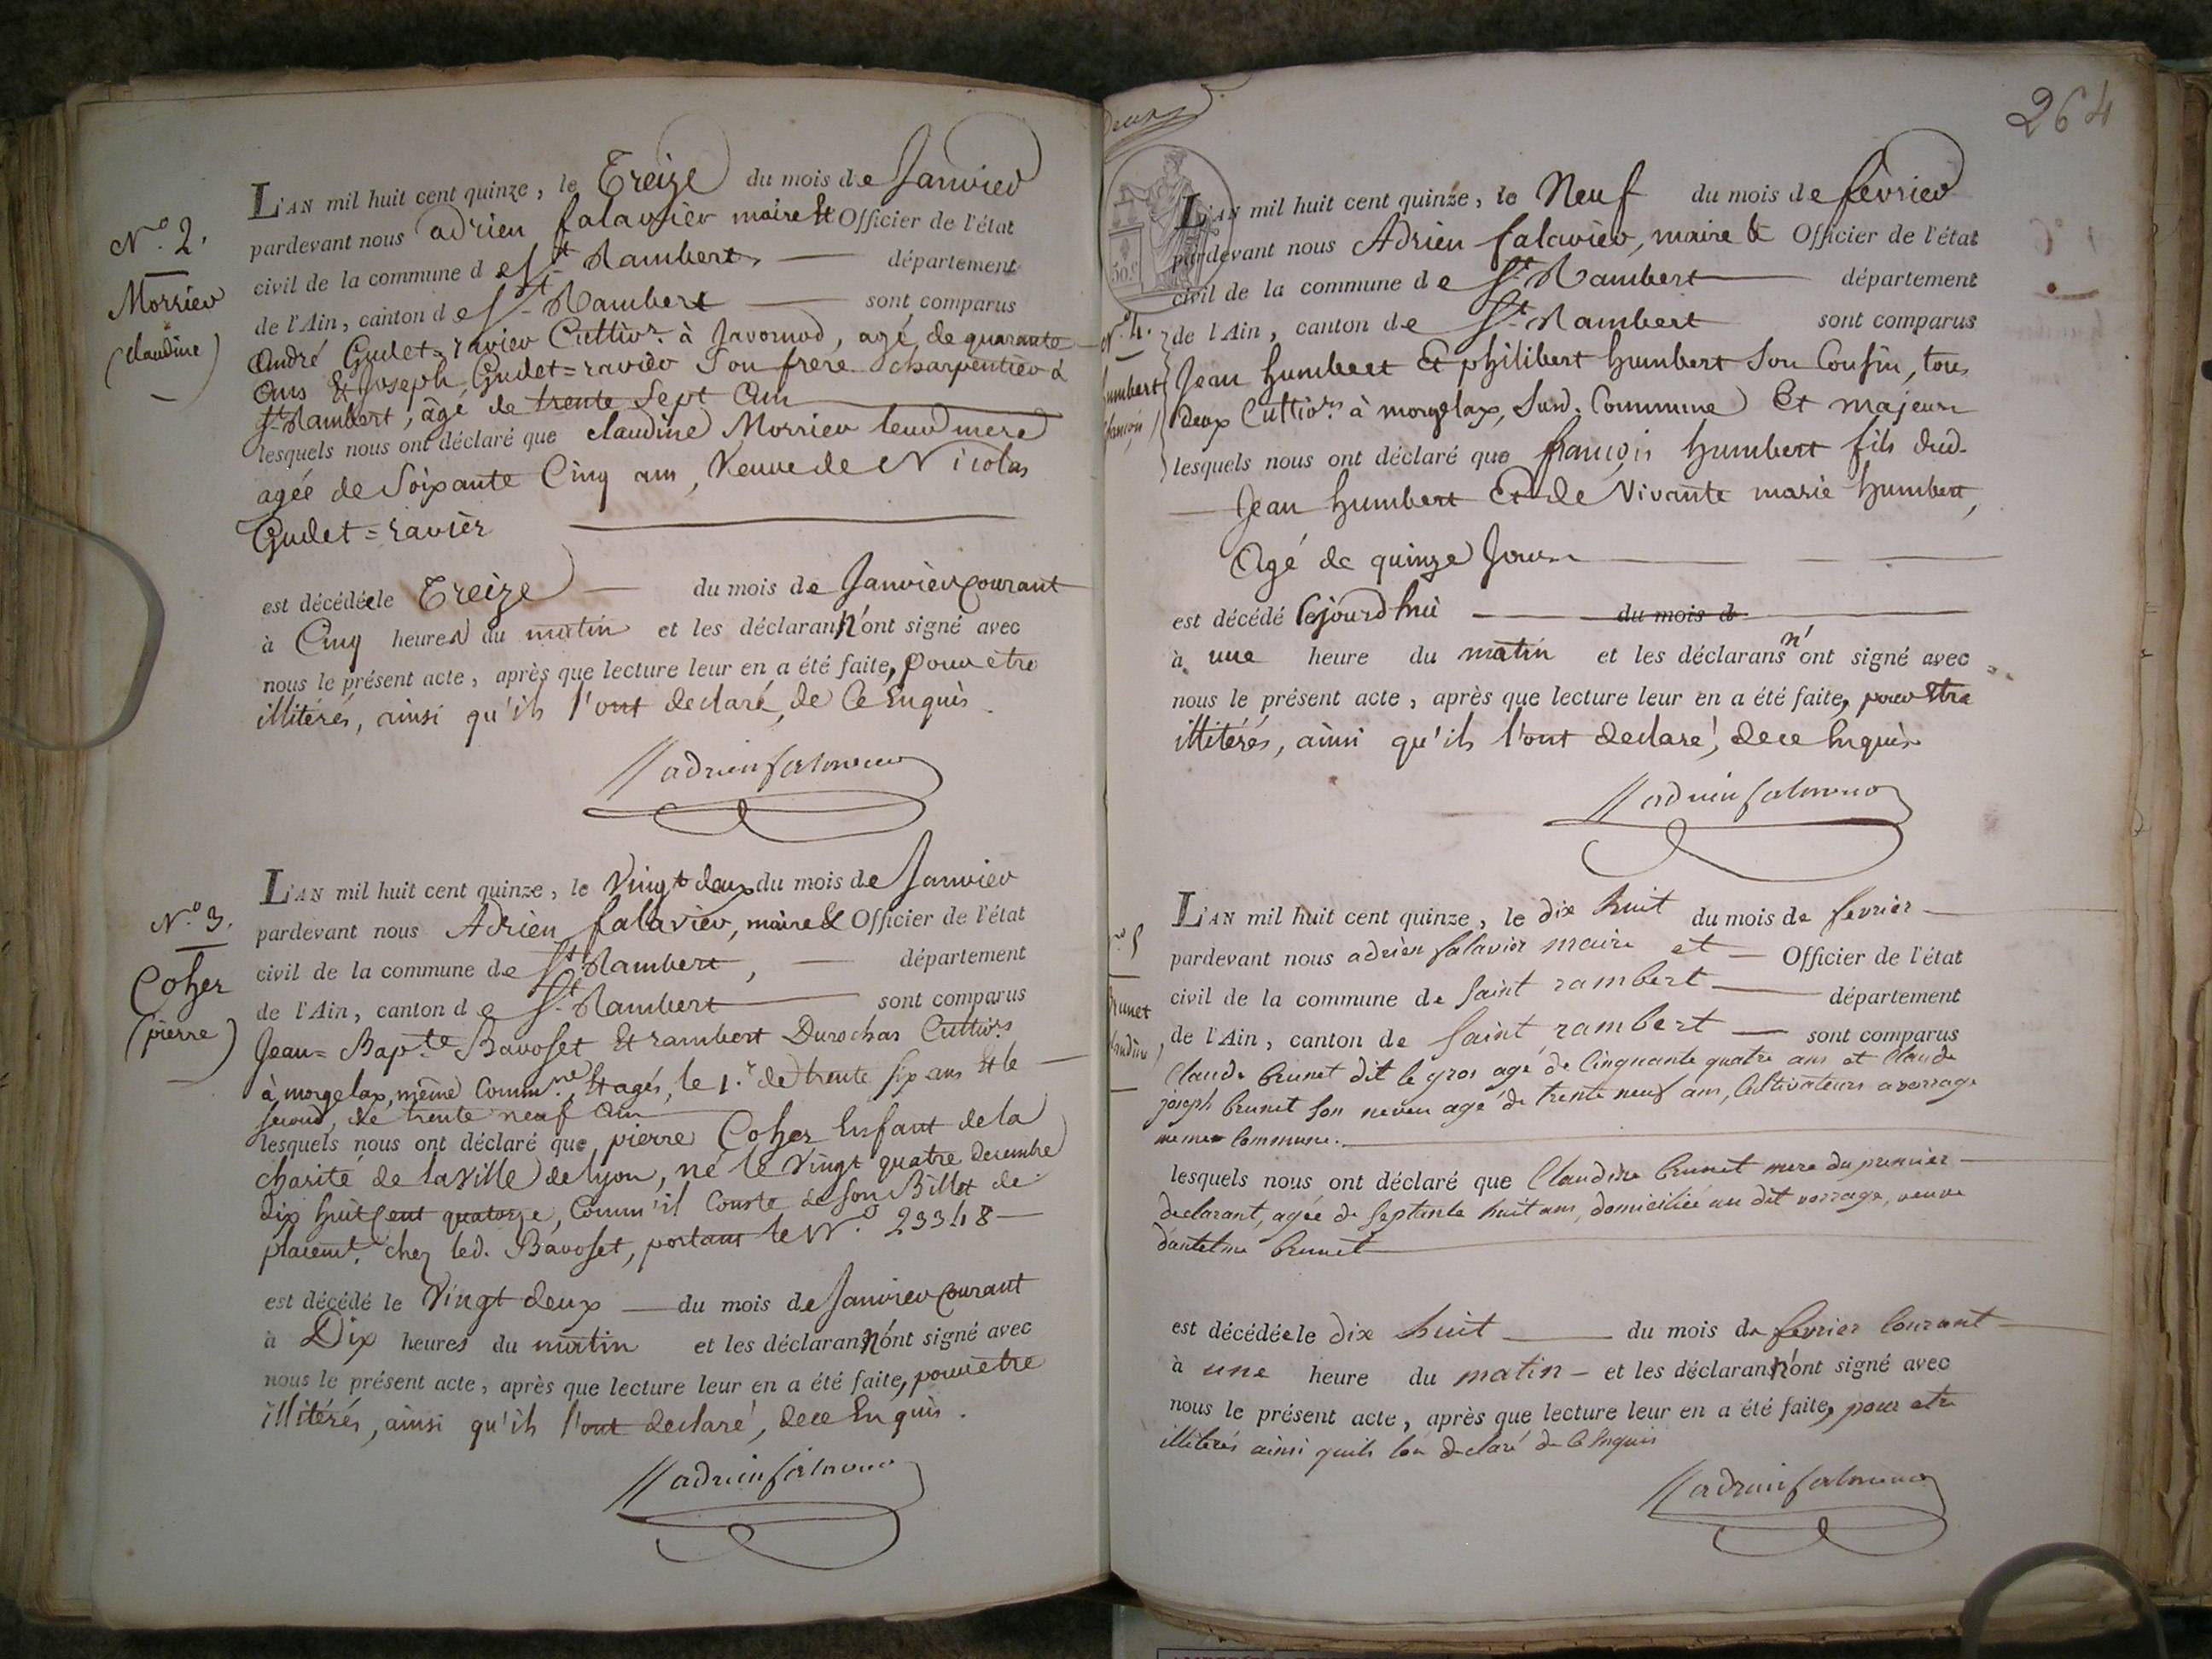 N.o 2.
Morrier
(claudine)
L'AN mil huit cent quinze, le Treize du mois de Janvier
pardevant nous adrien falavier maire Et Officier de l'état
civil de la commune de St. Rambert département
de l'Ain, canton de St. Rambert sont comparus
André Gudet=ravier Cultivr. à Javornod, agé de quarante
Ans Et Joseph Gudet=ravier Son frere charpentier à
St. Rambert, âgé de trente Sept Ans
lesquels nous ont déclaré que claudine Morrier leur mere
agée de Soixante Cinq ans, Veuve de Nicolas
Gudet=ravier
est décédée le Treize du mois de Janvier courant
à Cinq heures du matin et les déclarans n'ont signé avec
nous le présent acte, après que lecture leur en a été faite, pour etre
illitérés, ainsi qu'ils l'ont declaré, de Ce Enquis.
adrien falavier
N.o 3.
Coher
(pierre)
L'AN mil huit cent quinze, le Vingt deux du mois de Janvier
pardevant nous Adrien falavier, maire Et Officier de l'état
civil de la commune de St. Rambert, département
de l'Ain, canton de St. Rambert sont comparus
Jean=Bapte. Bavoset Et rambert Durochas Cultivrs
à morgelax, même Commne. Et agés, le 1.r de trente six ans Et le
second, de trente neuf ans
lesquels nous ont déclaré que pierre Coher Enfant de la
charité de la Ville de lyon, né le Vingt quatre Decembre
dix huit Cent quatorze, Comm'il Conste de son Billet de
placemt. chez led. Bavoset, portant le N.o 23348
est décédé le Vingt deux du mois de Janvier Courant
à Dix heures du matin et les déclarans n'ont signé avec
nous le présent acte, après que lecture leur en a été faite, pour être
illitérés, ainsi qu'ils l'ont declaré, de ce Enquis.
adrien falavier
264
deux
50.c
N.o 4.
humbert
françois
L'AN mil huit cent quinze, le Neuf du mois de février
pardevant nous Adrien falavier, maire & Officier de l'état
civil de la commune de St. Rambert département
de l'Ain, canton de St. Rambert sont comparus
Jean humbert Et philibert humbert Son Cousin, tous
deux Cultivrs à morgelax, Susd. Commune Et majeurs
lesquels nous ont déclaré que françois humbert fils dud.
Jean humbert Et de Vivante marie humbert,
Agé de quinze Jours
est décédé Cejourd'hui du mois d
à une heure du matin et les déclarans n'ont signé avec
nous le présent acte, après que lecture leur en a été faite, pour Etre
illitérés, ainsi qu'ils l'ont declaré, de ce Enquis
adrien falavier
no 5
Brunet
Claudine
L'AN mil huit cent quinze, le dix huit du mois de fevrier
pardevant nous adrien falavier maire et Officier de l'état
civil de la commune de Saint rambert département
de l'Ain, canton de Saint rambert sont comparus
Claude brunet dit le gros agé de Cinquante quatre ans et Claude
joseph brunet son neveu agé de trente neuf ans, Cultivateurs a vorrage
meme Commune.
lesquels nous ont déclaré que Claudine brunet mere du premier
declarant, agée de Septante huit ans, domiciliée au dit vorrage, veuve
d'antelme brunet
est décédée le dix huit du mois de fevrier Courant
à une heure du matin et les déclarans n'ont signé avec
nous le présent acte, après que lecture leur en a été faite, pour etre
illiterés ainsi quils lon declaré de Ce Enquis
adrien falavier